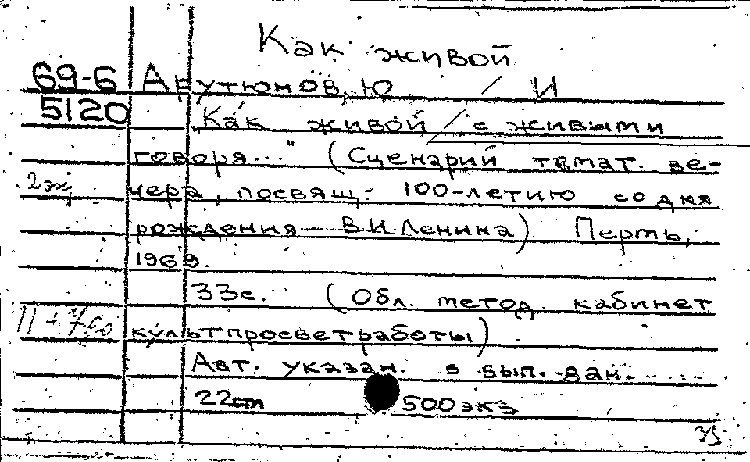 Как живой
69-6 Арутюмов, Ю / И
5120 "Как живой / с живыми
говоря..." (Сценарий темат. ве-
2эк чера, посвящ. 100-летию со дня
рождения В.И. Ленина) Пермь,
1969.
33с. (Обл. метод. кабинет
культпросветработы)
Авт. указан. в вып. дан.
22см 500 экз